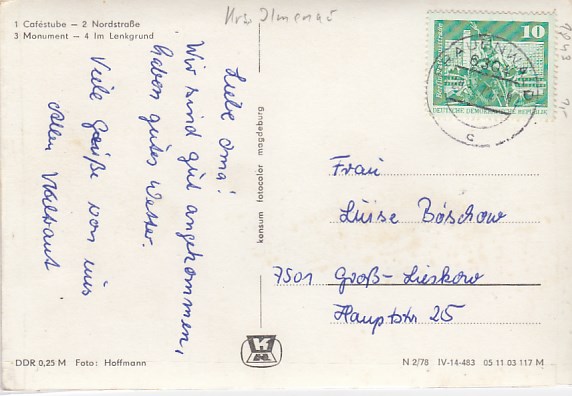 1 Caféstube — 2 Nordstraße
3 Monument — 4 Im Lenkgrund
Krs. Ilmenau
Liebe Oma!
Wir sind gut angekommen,
haben gutes Wetter.
Viele Grüße von uns
allen Waltraut
konsum fotocolor magdeburg
10
DEUTSCHE DEMOKRATISCHE REPUBLIK
c
Frau
Luise Böschow
7501 Groß-Lieskow
Hauptstr 25
DDR 0,25 M Foto: Hoffmann
N 2/78 IV-14-483 05 11 03 117 M